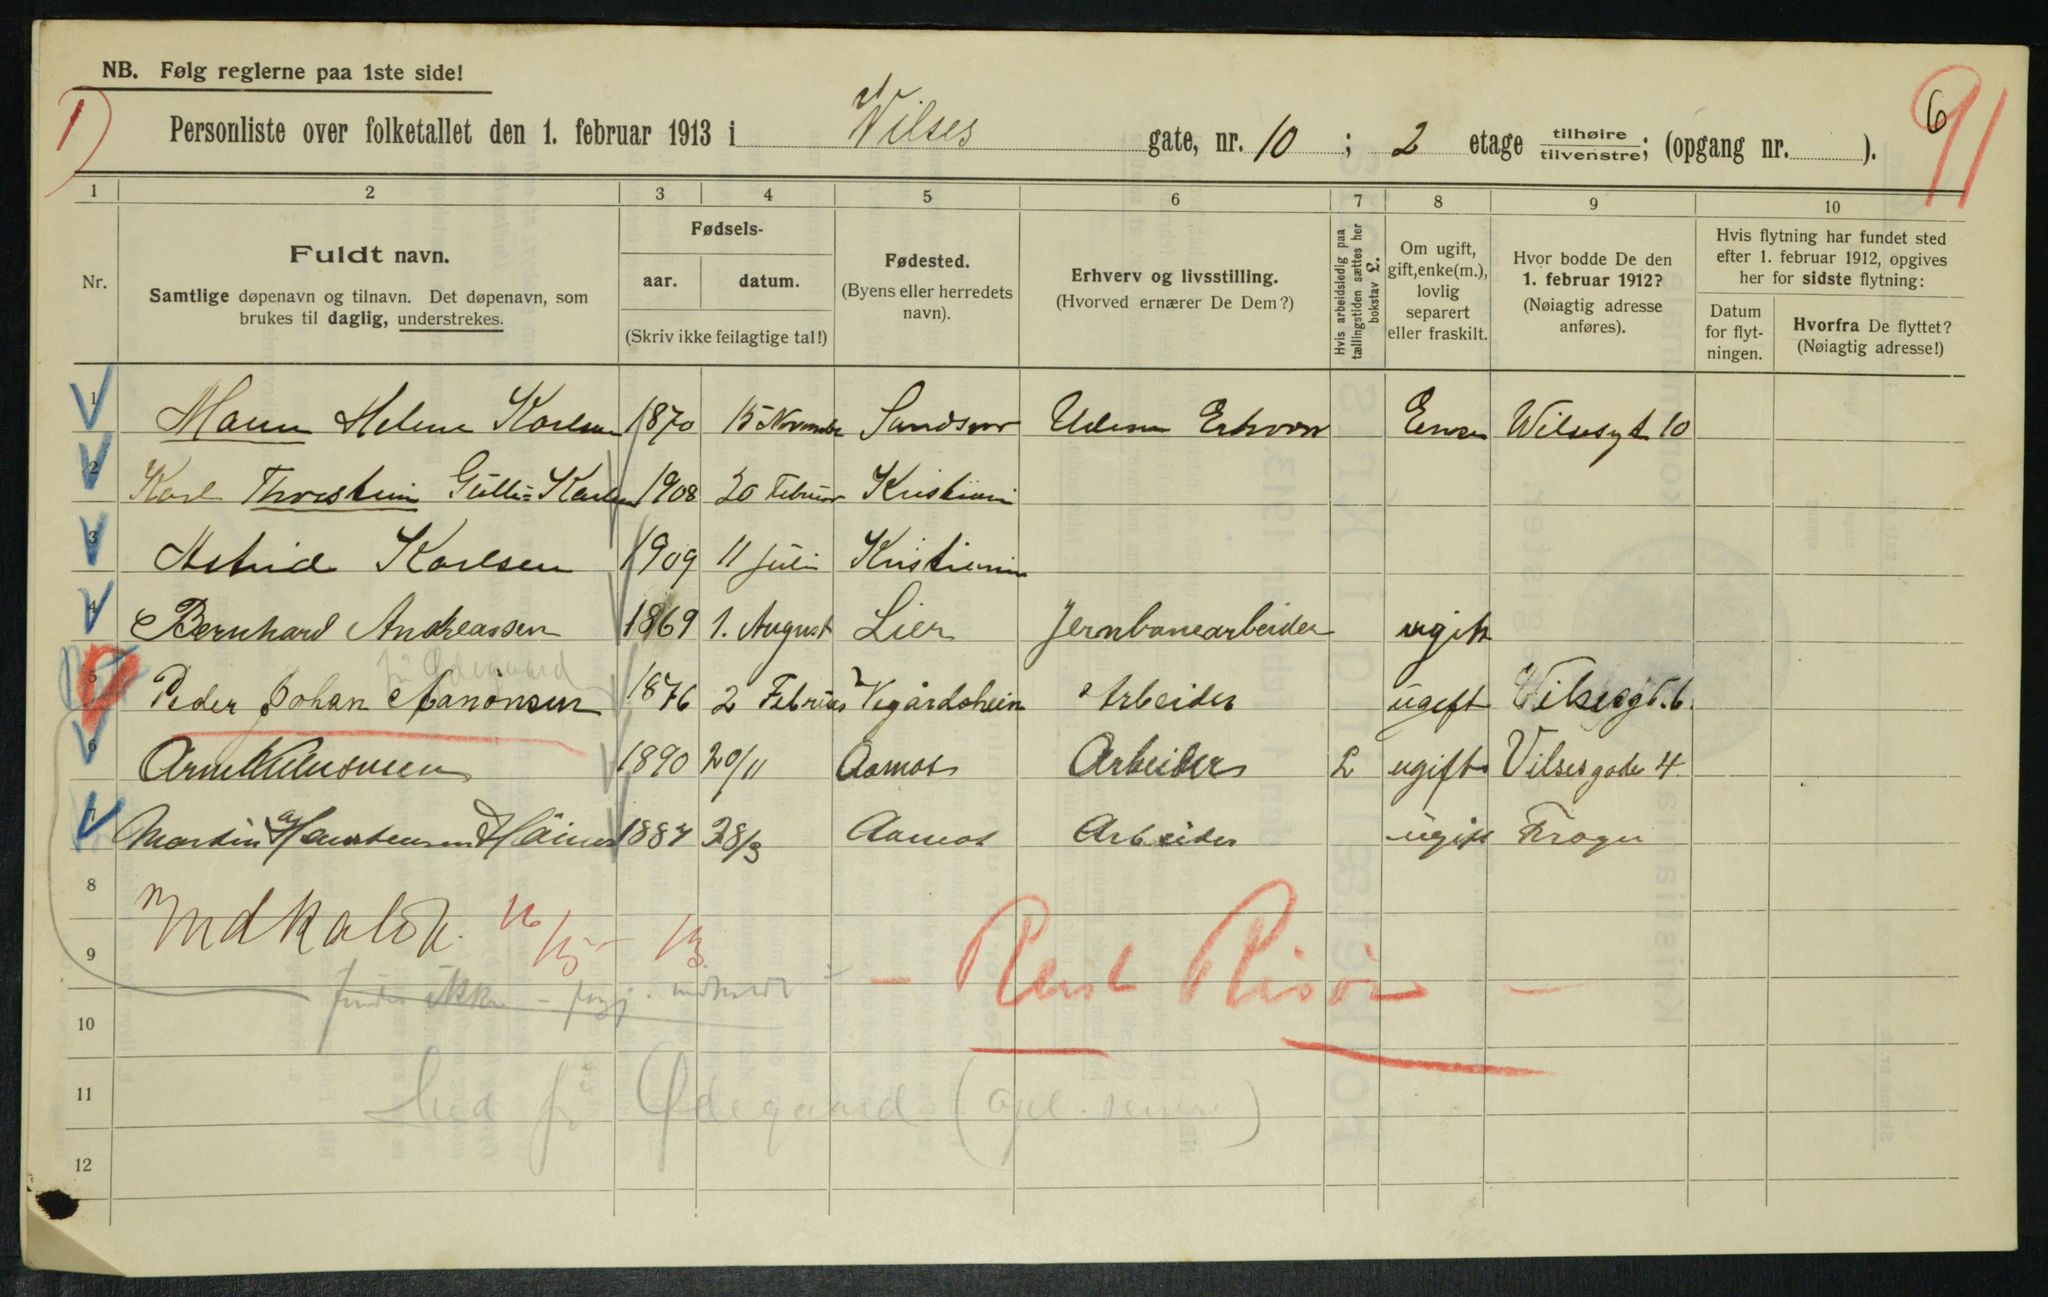 NB. Følg reglerne paa 1ste side!
1)
6
91
Personliste over folketallet den 1. februar 1913 i Vilses gate, nr. 10 ; 2 etage tilhøire/tilvenstre; (opgang nr. ).
1 2 3 4 5 6 7 8 9 10
Nr.
Fuldt navn.
Samtlige døpenavn og tilnavn. Det døpenavn, som
brukes til daglig, understrekes.
Fødsels-
aar. datum.
(Skriv ikke feilagtige tal!)
Fødested.
(Byens eller herredets
navn).
Erhverv og livsstilling.
(Hvorved ernærer De Dem?)
Hvis arbeidsledig paa
tællingstiden sættes her
bokstav L.
Om ugift,
gift, enke(m.),
lovlig
separert
eller fraskilt.
Hvor bodde De den
1. februar 1912?
(Nøiagtig adresse
anføres).
Hvis flytning har fundet sted
efter 1. februar 1912, opgives
her for sidste flytning:
Datum
for flyt-
ningen.
Hvorfra De flyttet?
(Nøiagtig adresse!)
1 Helene Karlsen 1870 15 November Uden Erhverv 10
2 Karl Thorstein Karlsen 1908 20 Februar Kristiania
3 Astrid Karlsen 1909 11 Juli Kristiania
4 Bernhard Andreassen 1869 1. August Lier Jernbanearbeider ugift
Ødegaard
5 Peder Johan 1876 2 Vegårdshein Arbeider ugift Vilsesgt. 6.
6 1890 20/11 Aamot Arbeider L ugift Vilsesgade 4
7 Martin 1887 28/3 Aamot Arbeider ugift Frogn
8
Indkaldt. 16/5 - 13
9
- Reist Risør -
ikke -
10
11
Ødegaard (opl. senere)
12